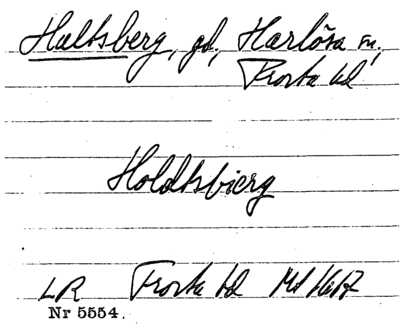 Hultsberg, gd, Harlösa sn,
Frosta hd
Holdtsbierg
LR Frosta hd
Nr 5554.